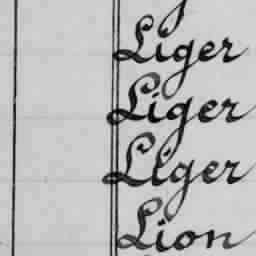 Liger
Liger
Liger
Lion